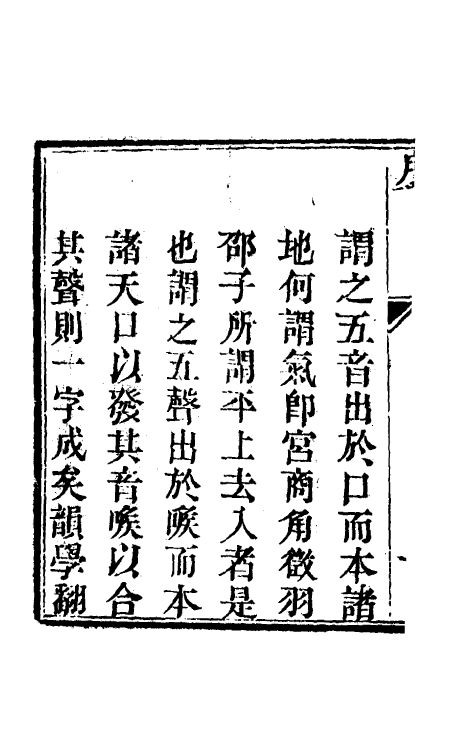 謂之五音出於口而本諸
地何謂氣卽宮商角徵羽
邵子所謂平上去入者是
也謂之五聲出於喉而本
諸天口以發其音喉以合
其聲則一字成矣韻學翻